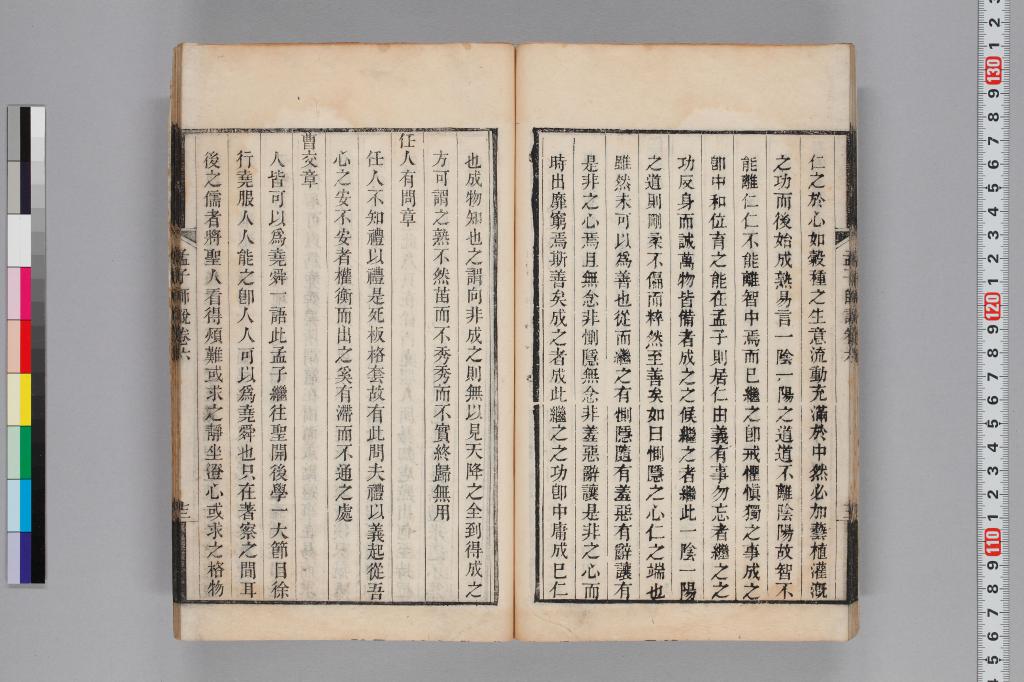 仁之於心如穀種之生意流動充滿於中然必加藝植灌漑
之功而後始成熟易言一陰一陽之道道不離陰陽故智不
能離仁仁不能離智中焉而已繼之卽戒懼愼獨之事成之
卽中和位育之能在孟子則居仁由義有事勿忘者繼之之
功反身而誠萬物皆備者成之之候繼之者繼此一陰一陽
之道則剛柔不偏而粹然至善矣如曰惻隱之心仁之端也
雖然未可以爲善也從而繼之有惻隱隨有羞惡有辭讓有
是非之心焉且無念非惻隱無念非羞惡辭讓是非之心而
時出靡窮焉斯善矣成之者成此繼之之功卽中庸成巳仁
也成物知也之謂向非成之則無以見天降之全到得成之
方可謂之熟不然苗而不秀秀而不實終歸無用
任人有問章
任人不知禮以禮是死板格套故有此問夫禮以義起從吾
心之安不安者權衡而出之奚有滯而不通之處
曹交章
人皆可以爲堯舜一語此孟子繼往聖開後學一大節目徐
行堯服人人能之卽人人可以爲堯舜也只在著察之間耳
後之儒者將聖人看得煩難或求之靜坐澄心或求之格物
孟子師說卷六